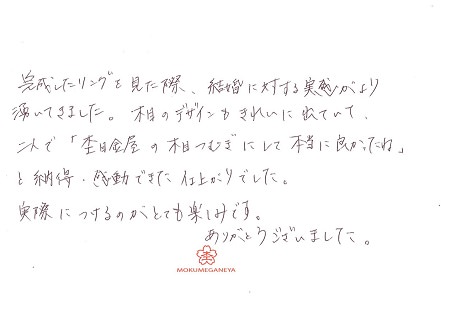 完成したリングを見た際、結婚に対する実感がより
湧いてきました。木目のデザインもきれいに出ていて、
二人で「杢目金屋の木目つむぎにして本当に良かったね」
と納得・感動できた仕上がりでした。
実際につけるのがとても楽しみです。
ありがとうございました。
MOKUMEGANEYA